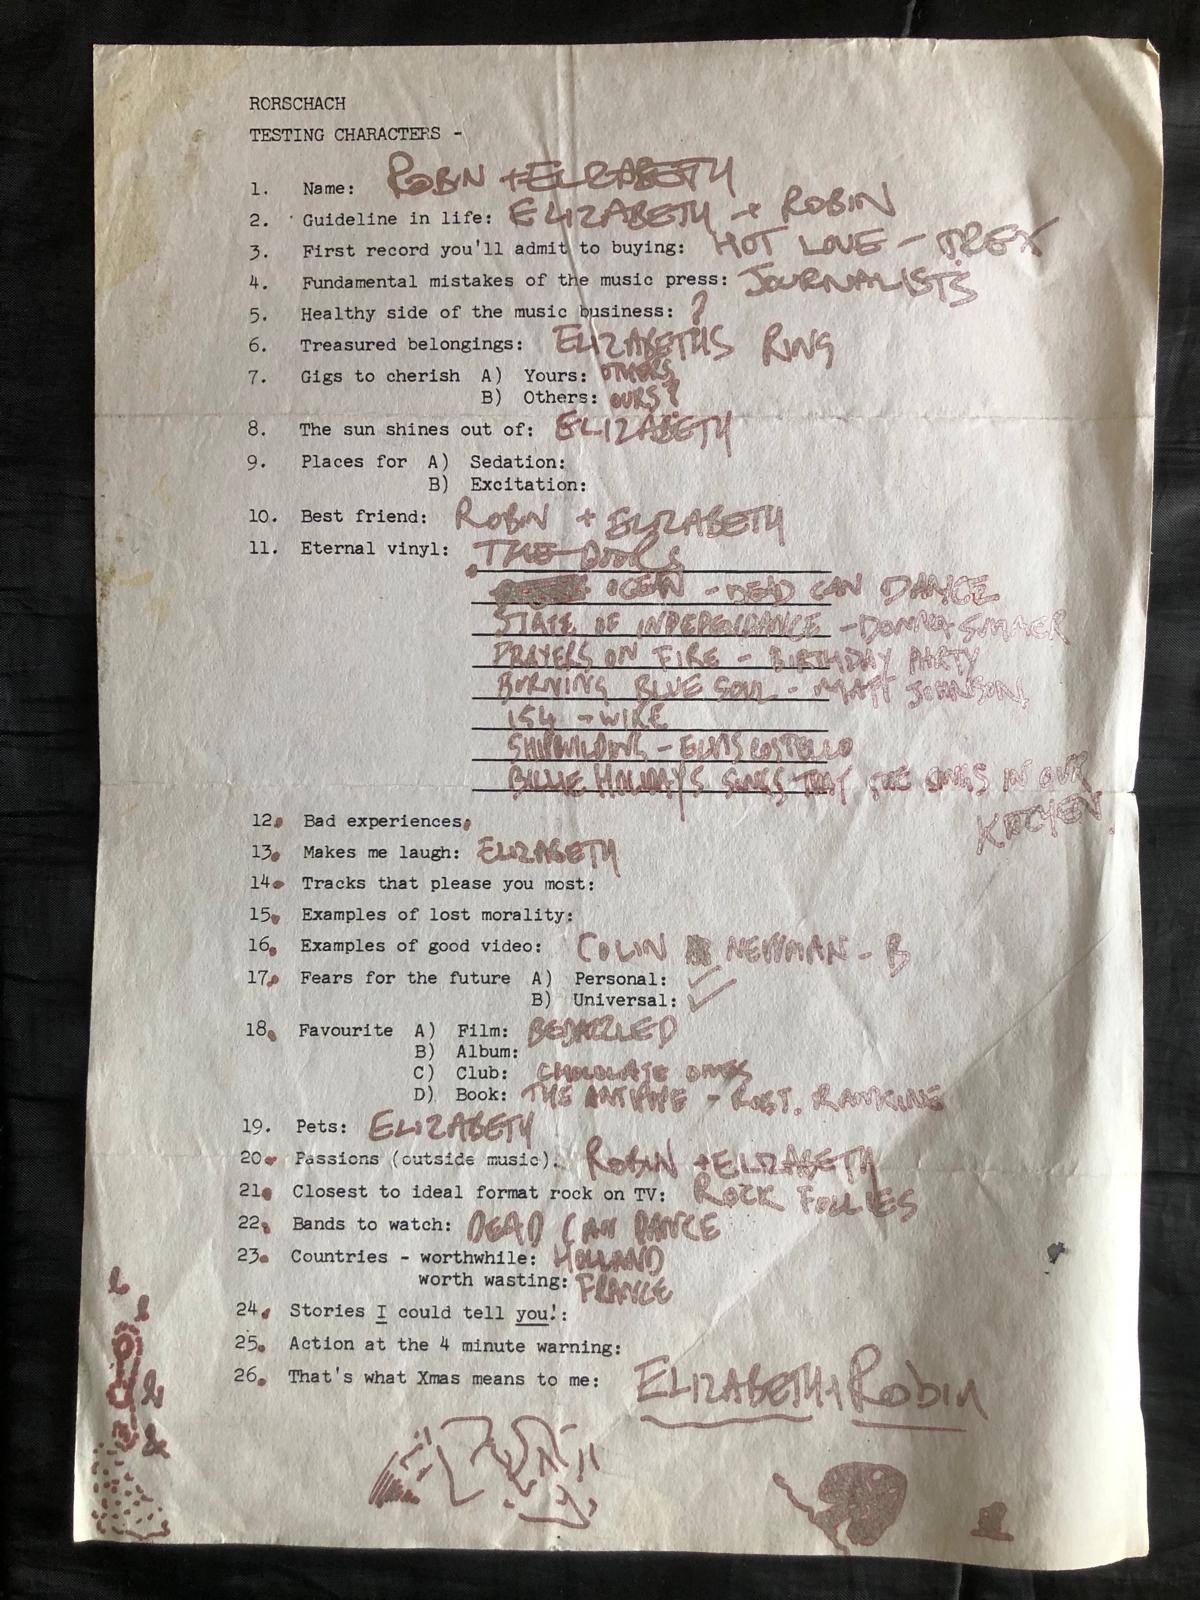 RORSCHACH
TESTING CHARACTERS -
1. Name: ROBIN + ELIZABETH
2. Guideline in life: ELIZABETH + ROBIN
3. First record you'll admit to buying: HOT LOVE - TREX
4. Fundamental mistakes of the music press: JOURNALISTS
5. Healthy side of the music business: ?
6. Treasured belongings: ELIZABETHS RING
7. Gigs to cherish A) Yours: OTHERS
B) Others: OURS?
8. The sun shines out of: ELIZABETH
9. Places for A) Sedation:
B) Excitation:
10. Best friend: ROBIN + ELIZABETH
11. Eternal vinyl: THE DOORS
OCEAN - DEAD CAN DANCE
STATE OF INDEPENDANCE - DONNA SUMMER
PRAYERS ON FIRE - BIRTHDAY PARTY
BURNING BLUE SOUL - MATT JOHNSON
154 - WIRE
SHIPBUILDING - ELVIS COSTELLO
BILLIE HOLIDAYS SONGS THAT SHE SINGS IN OUR
KITCHEN.
12. Bad experiences.
13. Makes me laugh: ELIZABETH
14. Tracks that please you most:
15. Examples of lost morality:
16. Examples of good video: COLIN NEWMAN - B
17. Fears for the future A) Personal: ✓
B) Universal: ✓
18. Favourite A) Film: BEDAZZLED
B) Album:
C) Club: CHOCOLATE ONES
D) Book: THE ANTIPOPE - ROBT. RANKINE
19. Pets: ELIZABETH
20. Passions (outside music): ROBIN + ELIZABETH
21. Closest to ideal format rock on TV: ROCK FOLLIES
22. Bands to watch: DEAD CAN DANCE
23. Countries - worthwhile: HOLLAND
worth wasting: FRANCE
24. Stories I could tell you!:
25. Action at the 4 minute warning:
26. That's what Xmas means to me: ELIZABETH + ROBIN